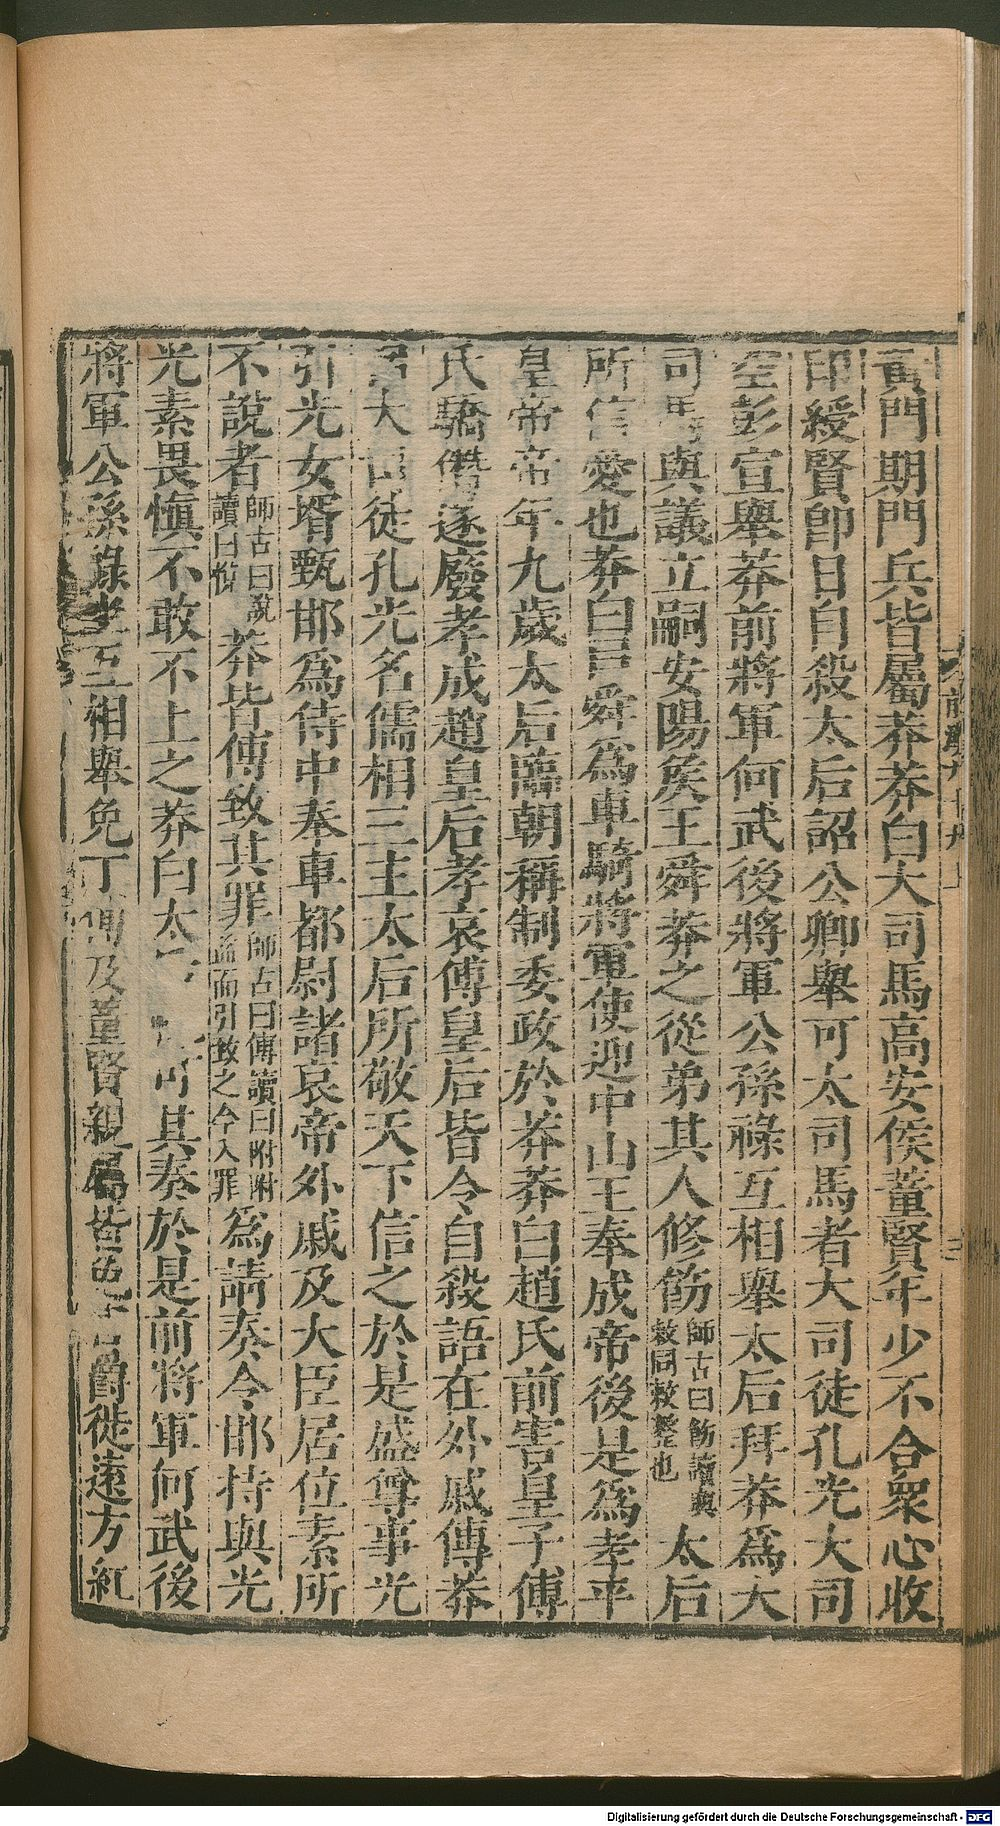 黃門期門兵皆屬莽莽白大司馬高安侯董賢年少不合衆心收
印綬賢卽日自殺太后詔公卿舉可大司馬者大司徒孔光大司
空彭宣舉莽前將軍何武後將軍公孫祿互相舉太后拜莽爲大
司馬與議立嗣安陽侯王舜莽之從弟其人修飭師古曰飭讀與敕同敕整也太后
所信愛也莽白 舜爲車騎將軍使迎中山王奉成帝後是爲孝平
皇帝帝年九歲太后臨朝稱制委政於莽莽白趙氏前害皇子傅
氏驕僭遂廢孝成趙皇后孝哀傅皇后皆令自殺語在外戚傳莽
大 徒孔光名儒相三主太后所敬天下信之於是盛尊事光
引光女壻甄邯爲侍中奉車都尉諸哀帝外戚及大臣居位素所
不說者師古曰說讀曰悅莽皆傅致其罪師古曰傅讀曰附附益而引致之令入罪爲請奏令邯持與光
光素畏愼不敢不上之莽白太 可其奏於是前將軍何武後
將軍公孫祿坐互相舉免丁傅及董賢親屬皆 官爵徙遠方紅
Digitalisierung gefördert durch die Deutsche Forschungsgemeinschaft - DFG